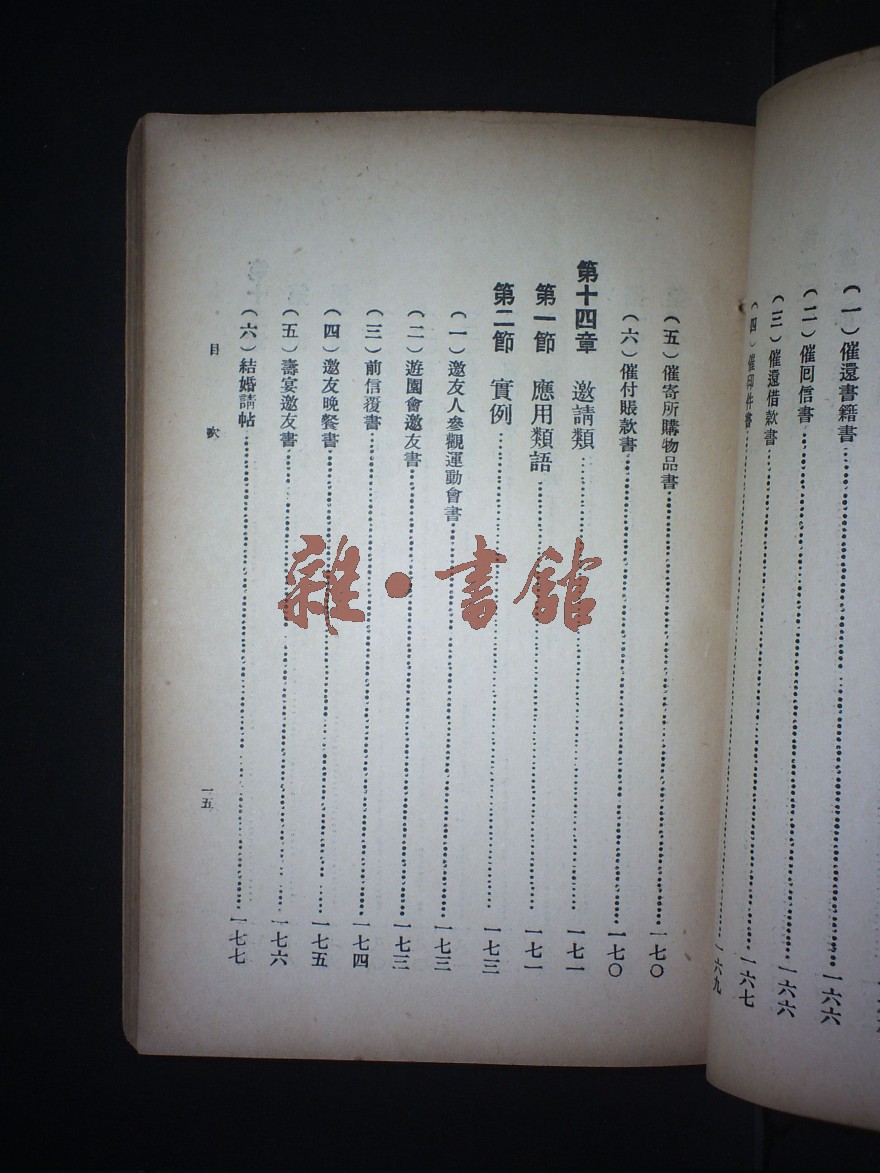 （一）催還書籍書 一六六
（二）催囘信書 一六六
（三）催還借款書 一六七
（四）催印件書 一六九
（五）催寄所購物品書 一七〇
（六）催付賬款書 一七〇
第十四章　邀請類 一七一
第一節　應用類語 一七一
第二節　實例 一七三
（一）邀友人參觀運動會書 一七三
（二）遊園會邀友書 一七三
（三）前信覆書 一七四
（四）邀友晚餐書 一七五
（五）壽宴邀友書 一七六
（六）結婚請帖 一七七
目　次　一五
雜・書館